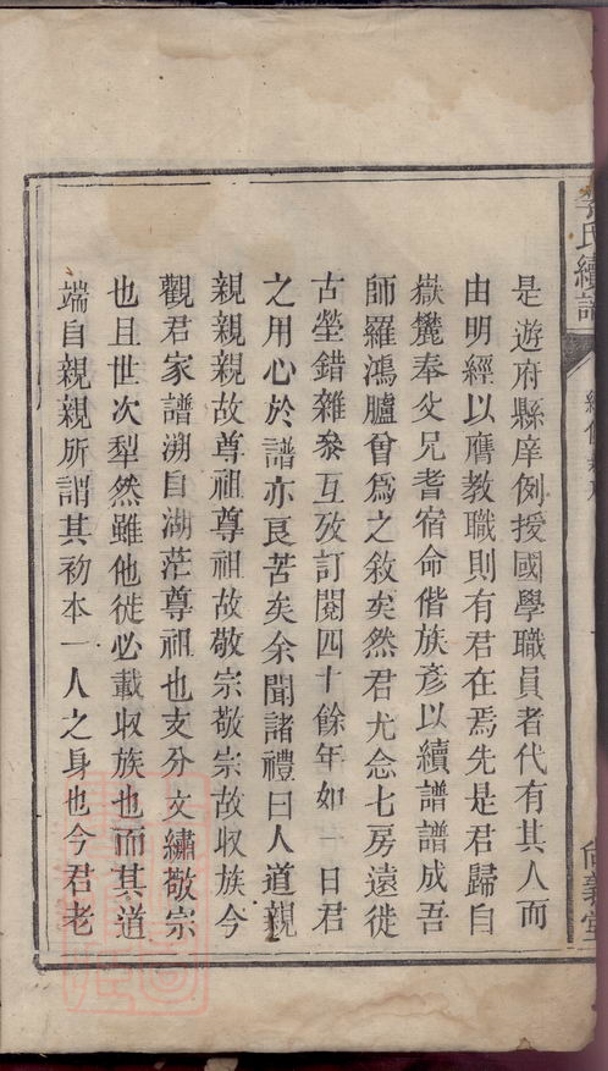 李氏續譜
尙義堂
是遊府縣庠例授國學職員者代有其人而
由明經以膺教職則有君在焉先是君歸自
嶽麓奉父兄耆宿命偕族彥以續譜譜成吾
師羅鴻臚曾爲之敘矣然君尤念七房遠徙
古塋錯雜叅互攷訂閱四十餘年如一日君
之用心於譜亦良苦矣余聞諸禮曰人道親
親親親故尊祖尊祖故敬宗敬宗故收族今
觀君家譜溯自湖茫尊祖也支分文繡敬宗
也且世次犁然雖他徙必載収族也而其道
端自親親所謂其初本一人之身也今君老